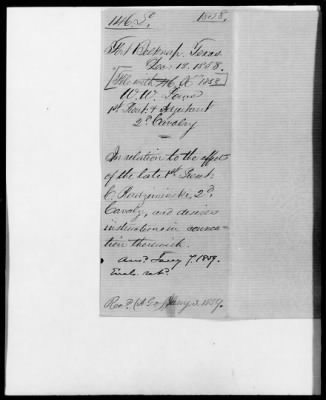 1858.
Fort Belknap, Texas
Dec. 12. 1858.
File with
W. W. Lowe
1st Lieut. & Adjutant
2d Cavalry
In relation to the effects
of the late 1st Lieut.
C. Radziminski, 2d
Cavalry, and desires
instructions in connec-
tion therewith.
Ans. Jany 7. 1859.
Recd. (A.G.O.) Jany 3. 1859.